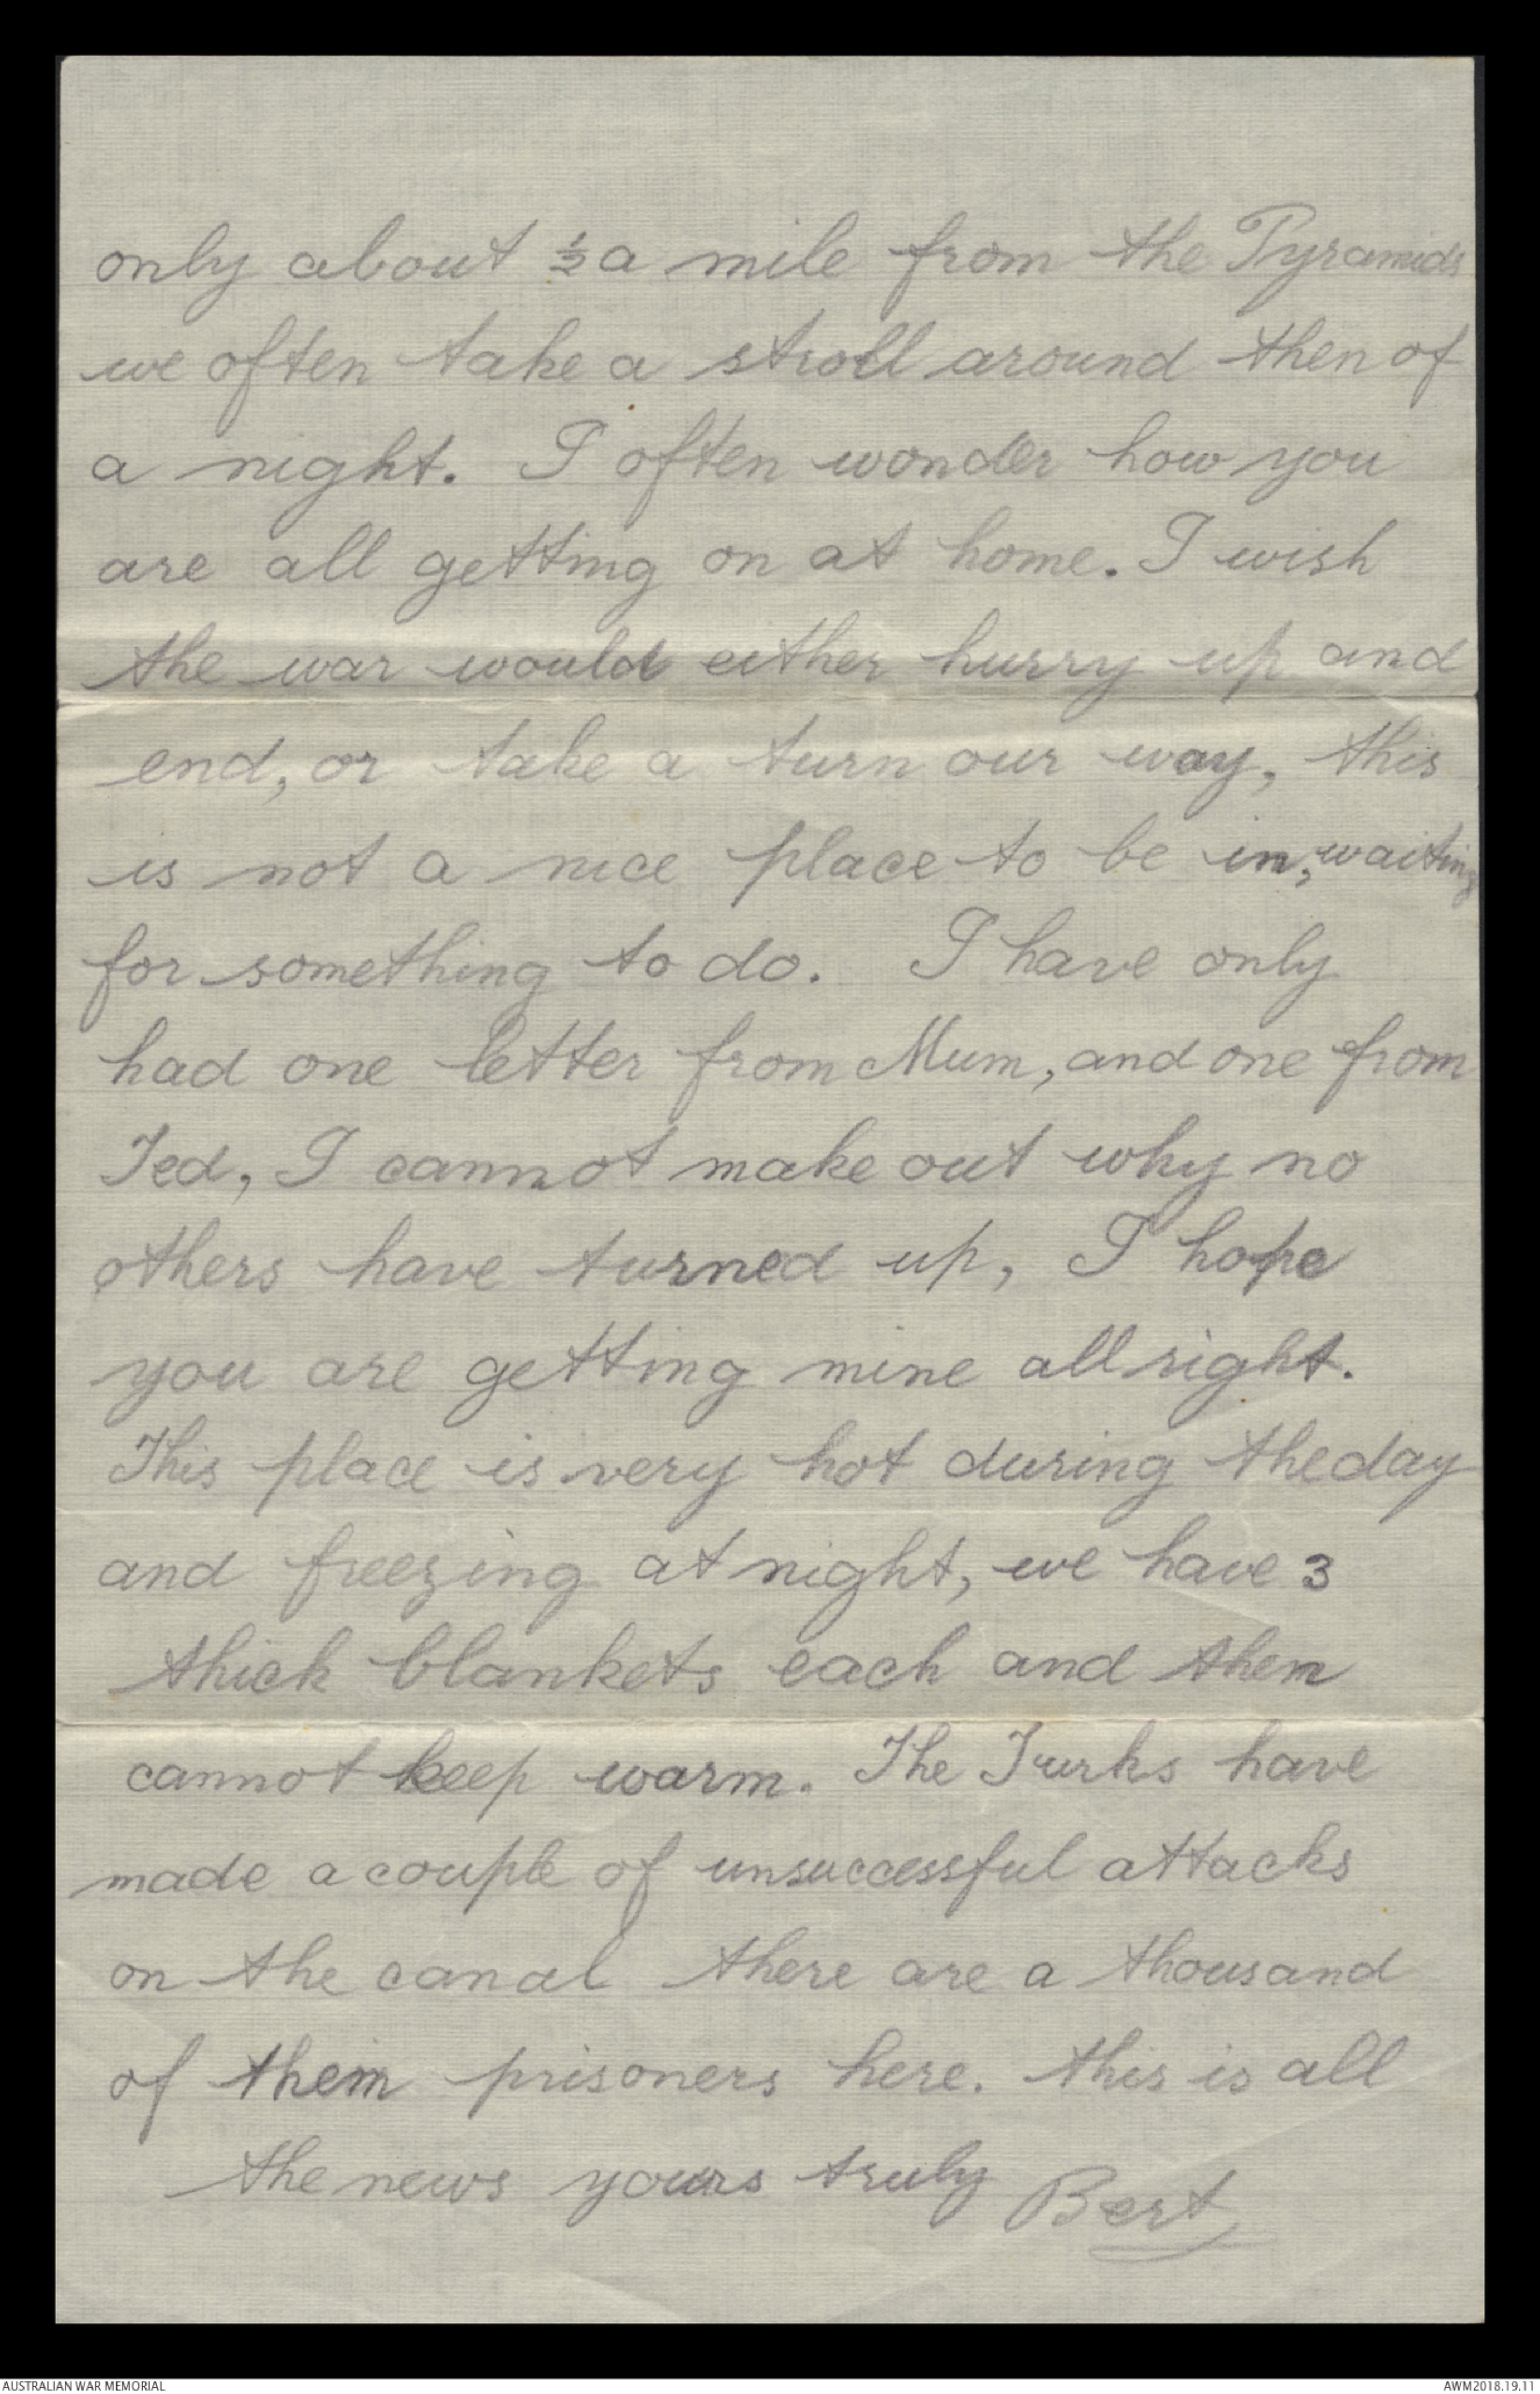 only about ½ a mile from the Pyramids
we often take a stroll around then of
a night. I often wonder how you
are all getting on at home. I wish
the war would either hurry up and
end, or take a turn our way, this
is not a nice place to be in, waiting
for something to do. I have only
had one letter from Mum, and one from
Ted, I cannot make out why no
others have turned up, I hope
you are getting mine allright.
This place is very hot during the day
and freezing at night, we have 3
thick blankets each and them
cannot keep warm. The Turks have
made a couple of unsuccessful attacks
on the canal there are a thousand
of them prisoners here. this is all
the news yours truly Bert
AUSTRALIAN WAR MEMORIAL
AWM2018.19.11